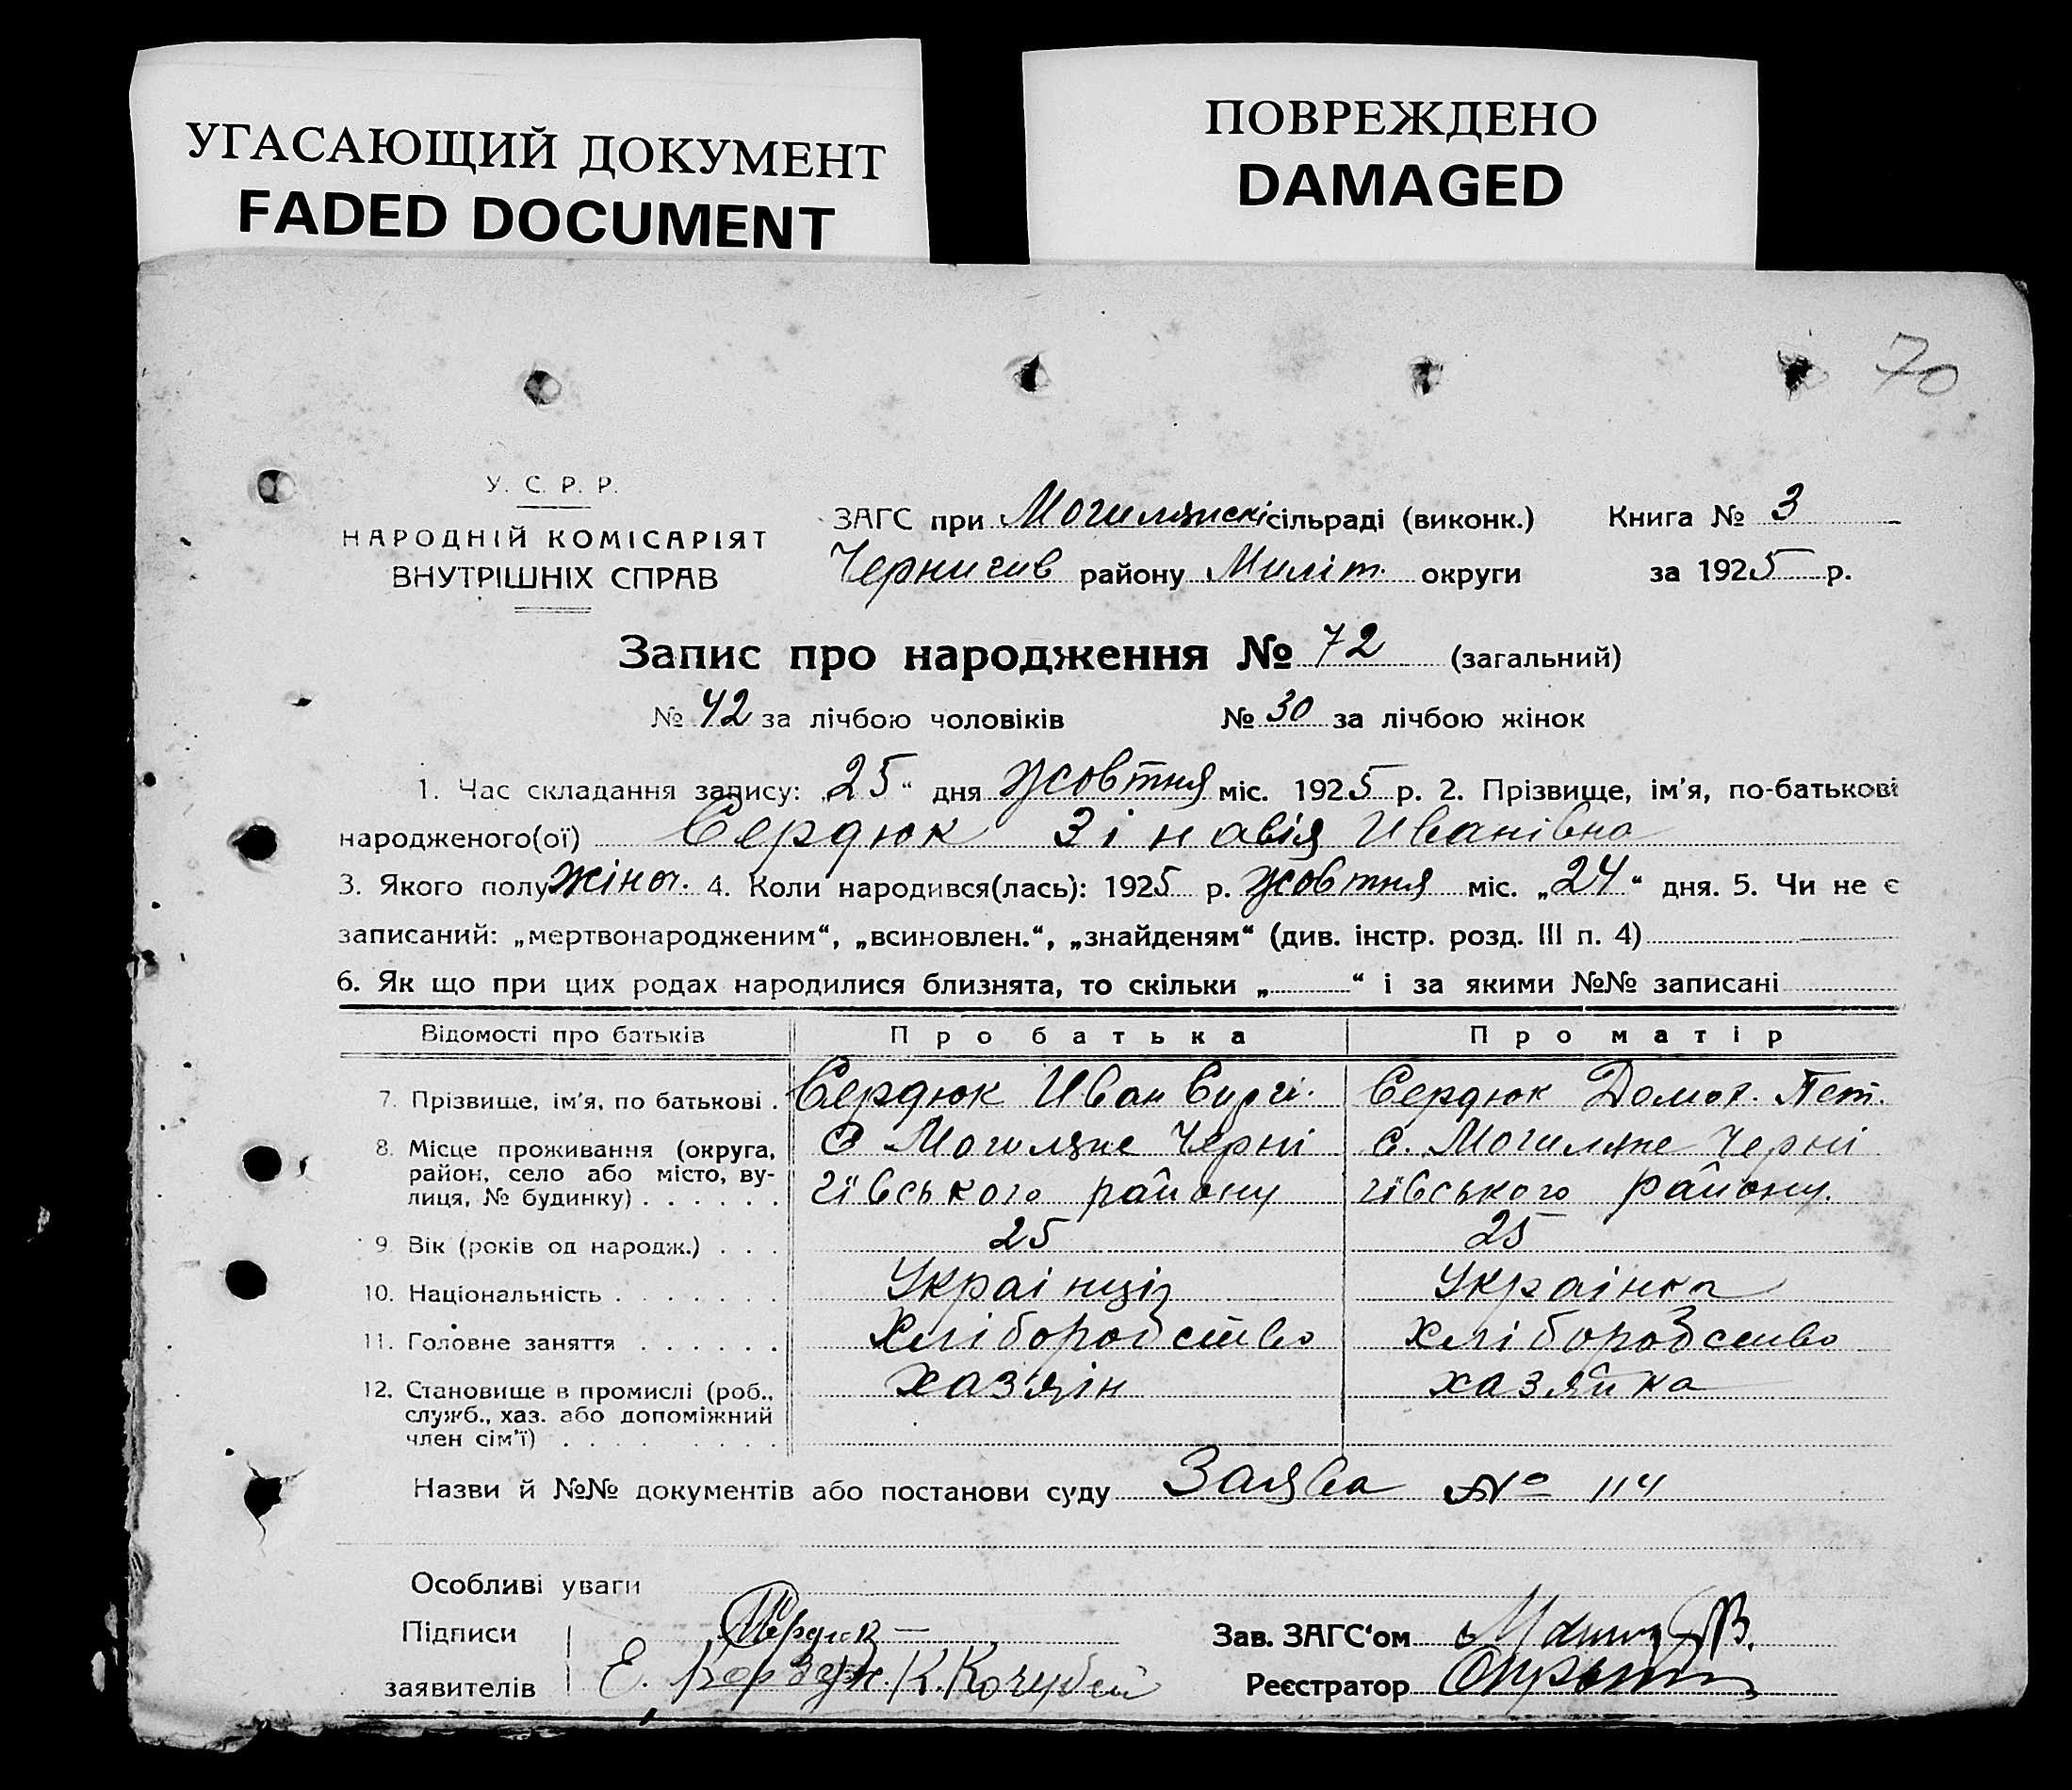 УГАСАЮЩИЙ ДОКУМЕНТ
FADED DOCUMENT
ПОВРЕЖДЕНО
DAMAGED
70
У. С. Р. Р.
НАРОДНІЙ КОМІСАРІЯТ
ВНУТРІШНІХ СПРАВ
ЗАГС при Могилянскі сільраді (виконк.) Книга № 3
Чернигив району Меліт. округи за 1925 р.
Запис про народження № 72 (загальний)
№ 42 за лічбою чоловіків № 30 за лічбою жінок
1. Час складання запису: „25“ дня жовтня міс. 1925 р. 2. Прізвище, ім'я, по-батькові
народженого(ої) Сердюк Зінавія Иванівна
3. Якого полу жіноч. 4. Коли народився(лась): 1925 р. жовтня міс. „24“ дня. 5. Чи не є
записаний: „мертвонародженим“, „всиновлен.“, „знайденям“ (див. інстр. розд. III п. 4)
6. Як що при цих родах народилися близнята, то скільки „ “ і за якими №№ записані
Відомості про батьків Про батька Про матір
7. Прізвище, ім'я, по батькові . Сердюк Иван Сергі. Сердюк Домах. Пет.
8. Місце проживання (округа, район, село або місто, вулиця, № будинку) . . . . . . С Могиляне Черні гівського району С. Могиляне Черні гівського району.
9. Вік (років од народж.) . . . 25 25
10. Національність . . . . . . . Украінціз Украінка
11. Головне заняття . . . . . . Хліборобство Хліборобство
12. Становище в промислі (роб., служб., хаз. або допоміжний член сім'ї) . . . . . . . . . хазяін хазяйка
Назви й №№ документів або постанови суду Заява № 114
Особливі уваги
Підписи Сердюк Зав. ЗАГС'ом
заявителів Е. К. Кочубей Реєстратор